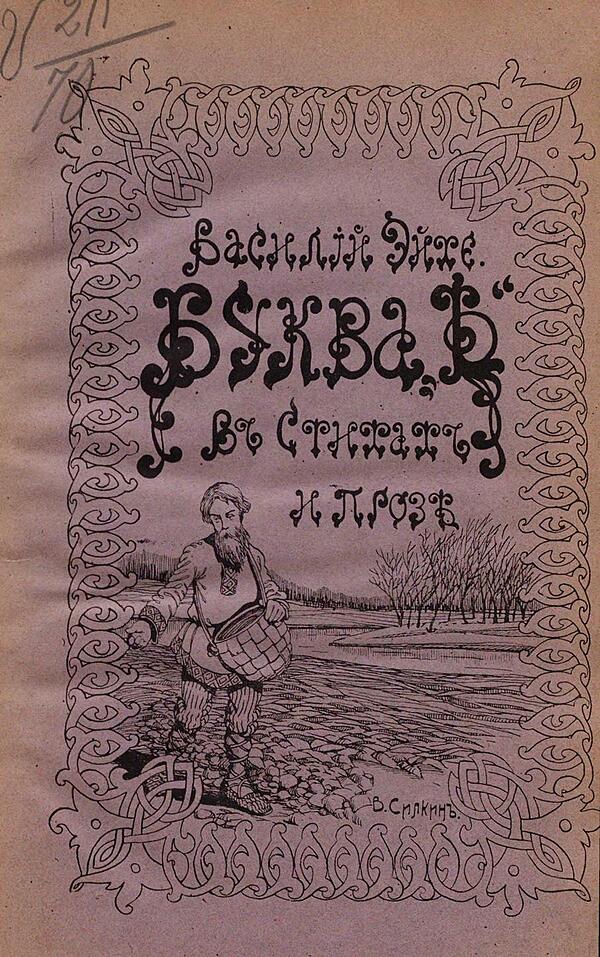 Василій Эйхе.
БУКВА „Ѣ“
въ Стихахъ
и прозѣ
В. Силкинъ.